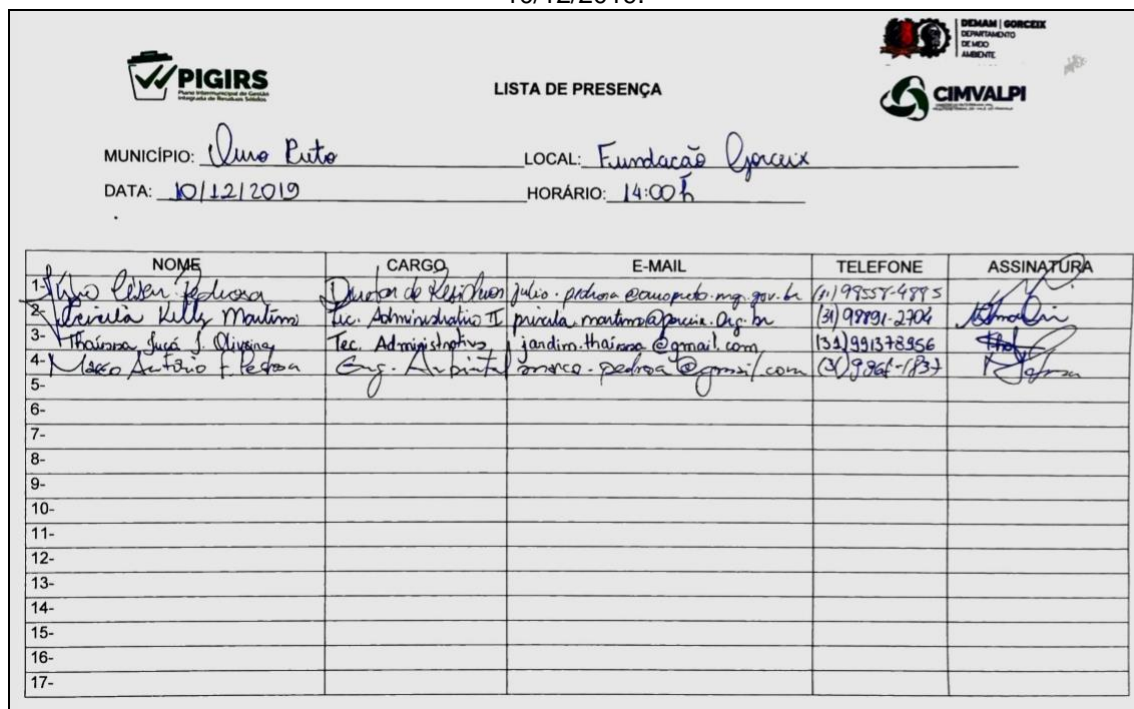 10/12/2019.
DEMAM | GORCEIX
DEPARTAMENTO
DE MEIO
AMBIENTE
PIGIRS
Plano Intermunicipal de Gestão
Integrada de Resíduos Sólidos
LISTA DE PRESENÇA
CIMVALPI
MUNICÍPIO: Ouro Preto LOCAL: Fundação Gorceix
DATA: 10/12/2019 HORÁRIO: 14:00 h
NOME CARGO E-MAIL TELEFONE ASSINATURA
1- Júlio César Pedrosa Diretor de Resíduos julio.pedrosa@ouropreto.mg.gov.br
2- Priscila Kelly Martins Tec. Administrativo II priscila.martins@gorceix.org.br (31) 98891-2704
3- Thaíssa Jucá J. Oliveira Tec. Administrativo jardim.thaissa@gmail.com (31) 991378956
4- Marco Antônio F. Pedrosa Eng. Ambiental marco.pedrosa@gmail.com
5-
6-
7-
8-
9-
10-
11-
12-
13-
14-
15-
16-
17-